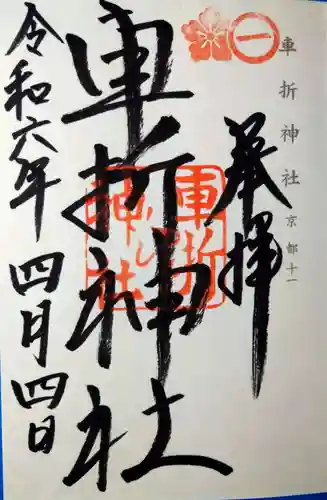 車折神社 京都十一
奉拝
車折神社
車折神社
令和六年 四月四日